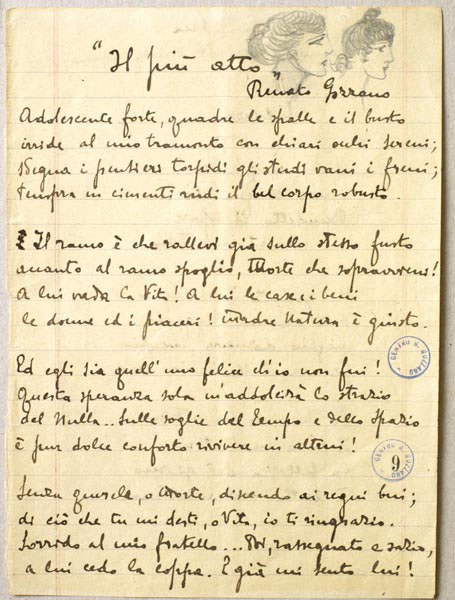 "Il più atto"
Renato Gozzano
Adolescente forte, quadre le spalle e il busto
irride al mio tramonto con chiari occhi sereni;
sdegna i pensieri torpidi gli studi vani i freni;
tempra in cimenti rudi il bel corpo robusto.
Il ramo è che rallevi già sullo stesso fusto
accanto al ramo spoglio, Morte che sopravvieni!
A lui vada la Vita! A lui le case i beni
le donne ed i piaceri! Madre Natura è giusto.
Ed egli sia quell'uno felice ch'io non fui!
Questa speranza sola m'addolcirà lo strazio
del Nulla... Sulle soglie del Tempo e dello Spazio
è pur dolce conforto rivivere in altrui!
Senza querele, o Morte, discendo ai regni bui;
di ciò che tu mi desti, o Vita, io ti ringrazio.
Sorrido al mio fratello... Poi, rassegnato e sazio,
a lui cedo la coppa. E già mi sento lui!
CENTRO
CENTRO
9